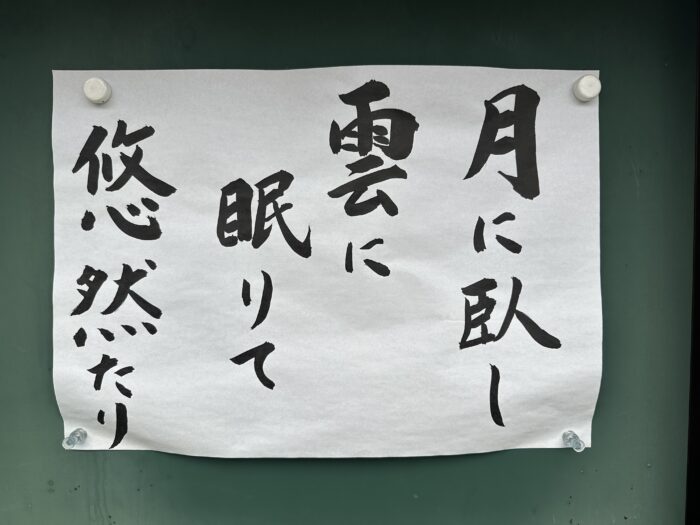 月に臥し
雲に
眠りて
悠然たり